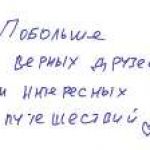 Побольше
верных друзе
и интересных
путешествий